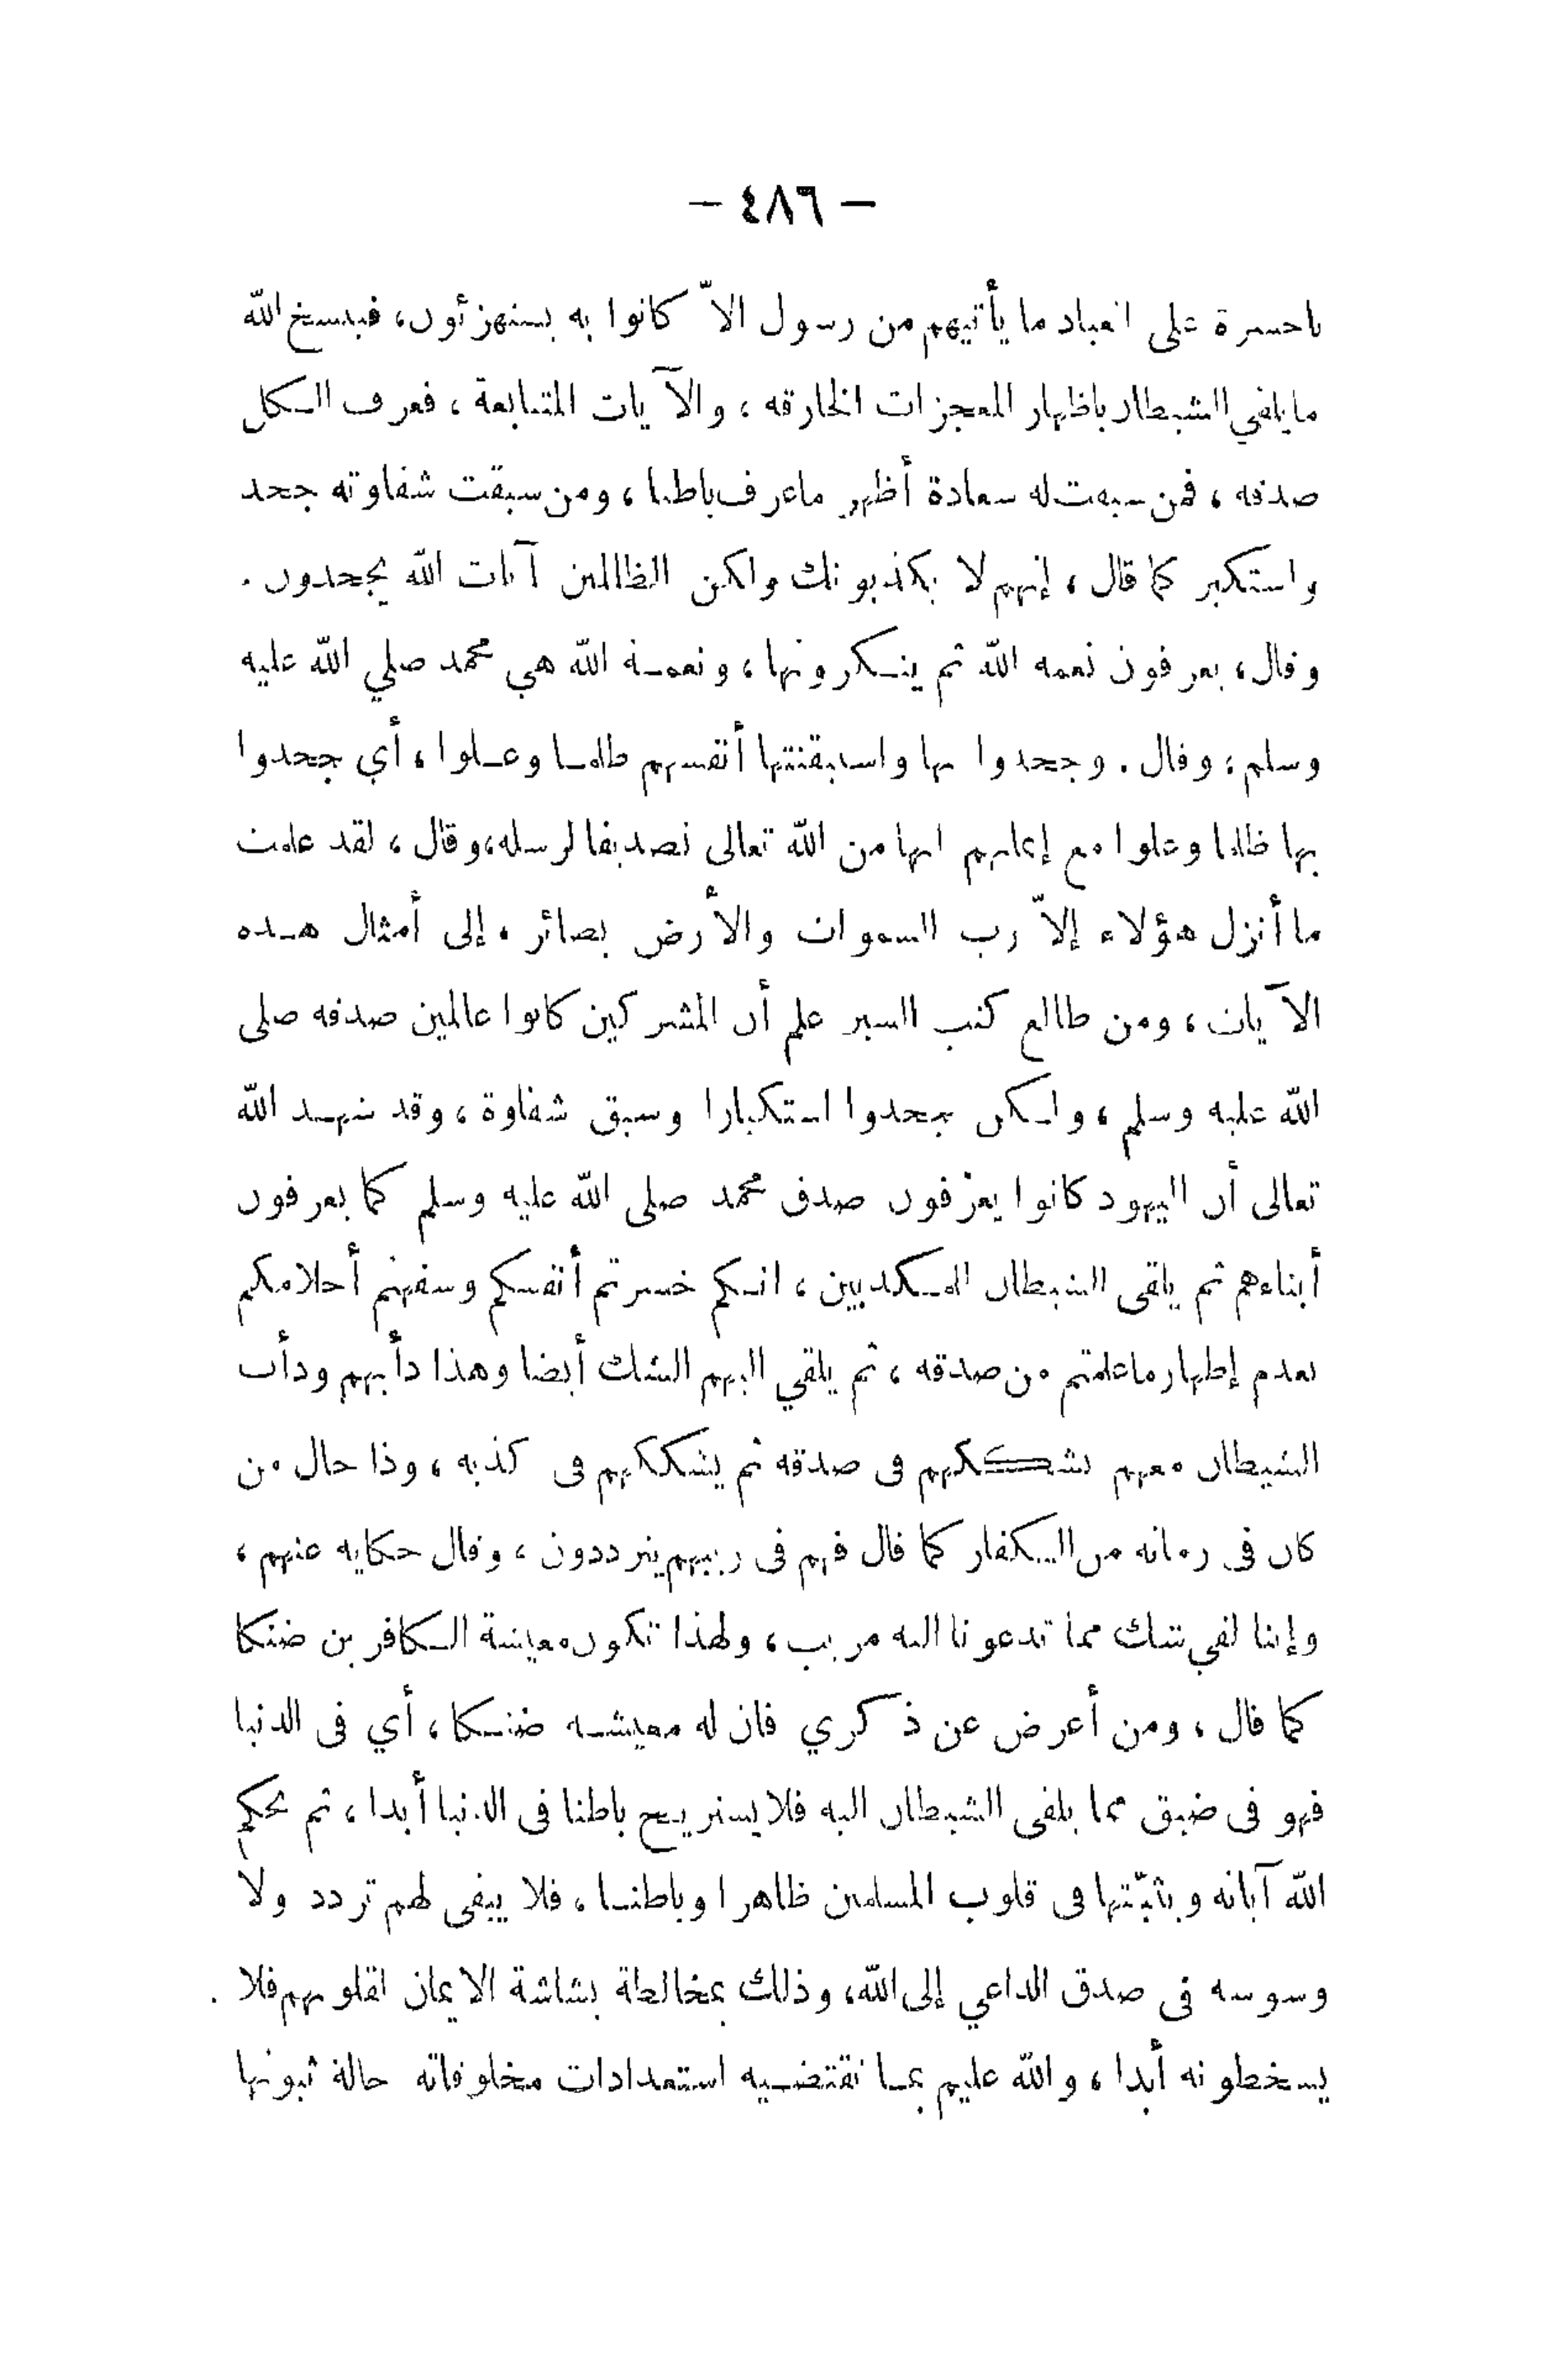 — ٤٨٦ —
ياحسرة على العباد ما يأتيهم من رسول الاّ كانوا به يستهزئون، فينسخ الله
ما يلقي الشيطان باظهار المعجزات الخارقة ، والآيات المتتابعة ، فعرف الكل
صدقه ، فمن سبقت له سعادة أظهر ماعرف باطنا ، ومن سبقت شقاوته جحد
واستكبر كما قال ، إنهم لا يكذبونك ولكن الظالمين آيات الله يجحدون .
وقال ، يعرفون نعمة الله ثم ينكرونها ، ونعمة الله هي محمد صلي الله عليه
وسلم ، وقال . وجحدوا بها واستيقنتها أنفسهم ظلما وعلوا ، أي جحدوا
بها ظلما وعلوا مع إعلامهم انها من الله تعالى تصديقا لرسله، وقال ، لقد علمت
ما أنزل هؤلاء إلاّ رب السموات والأرض بصائر ، إلى أمثال هذه
الآيات ، ومن طالع كتب السير علم أن المشركين كانوا عالمين صدقه صلى
الله عليه وسلم ، ولكن جحدوا استكبارا وسبق شقاوة ، وقد شهد الله
تعالى أن اليهود كانوا يعرفون صدق محمد صلى الله عليه وسلم كما يعرفون
أبناءهم ثم يلقى الشيطان للمكذبين ، انكم خسرتم أنفسكم وسفهتم أحلامكم
بعدم إظهار ماعلمتم من صدقه ، ثم يلقي اليهم الشك أيضا وهذا دأبهم ودأب
الشيطان معهم يشككهم فى صدقه ثم يشككهم فى كذبه ، وذا حال من
كان فى زمانه من الكفار كما قال فهم فى ريبهم يترددون ، وقال حكاية عنهم ،
وإننا لفي شك مما تدعونا اليه مريب ، ولهذا تكون معيشة الكافرين ضنكا
كما قال ، ومن أعرض عن ذكري فان له معيشة ضنكا ، أي فى الدنيا
فهو فى ضيق مما يلقى الشيطان اليه فلا يستريح باطنا فى الدنيا أبدا ، ثم يحكم
الله آياته ويثبّتها فى قلوب المسلمين ظاهرا وباطنا ، فلا يبقى لهم تردد ولا
وسوسة فى صدق الداعي إلى الله، وذلك بمخالطة بشاشة الايمان لقلوبهم فلا
يسخطونه أبدا ، والله عليم بما تقتضيه استعدادات مخلوقاته حالة ثبوتها